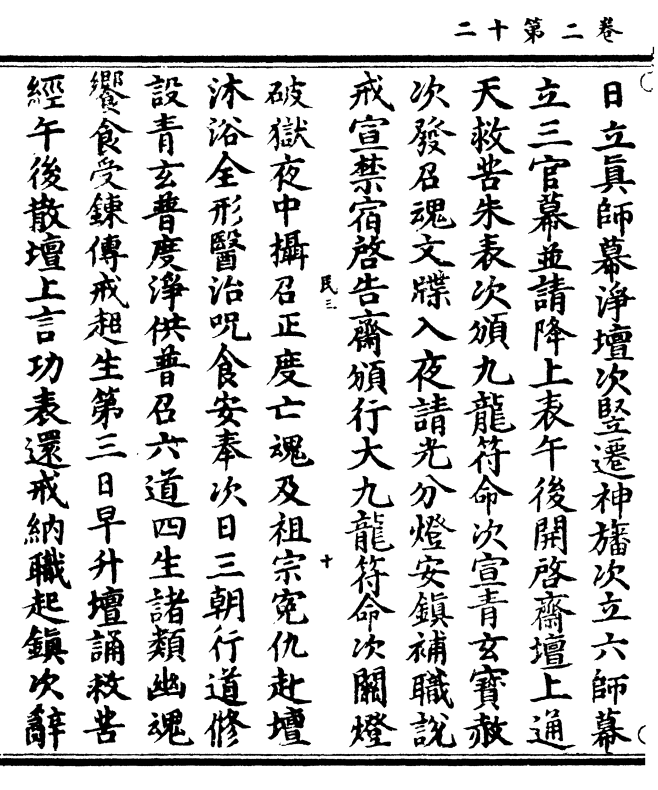 卷二第十二
日立眞師幕淨壇次竪遷神旛次立六師幕
立三官幕並請降上表午後開啓齋壇上通
天救苦朱表次頒九龍符命次宣青玄寶赦
次發召魂文牒入夜請光分燈安鎭補職說
戒宣禁宿啓告齋頒行大九龍符命次關燈
民三
十
破獄夜中攝召正度亡魂及祖宗寃仇赴壇
沐浴全形醫治呪食安奉次日三朝行道修
設青玄普度淨供普召六道四生諸類幽魂
饗食受鍊傳戒超生第三日早升壇誦救苦
經午後散壇上言功表還戒納職起鎭次辭